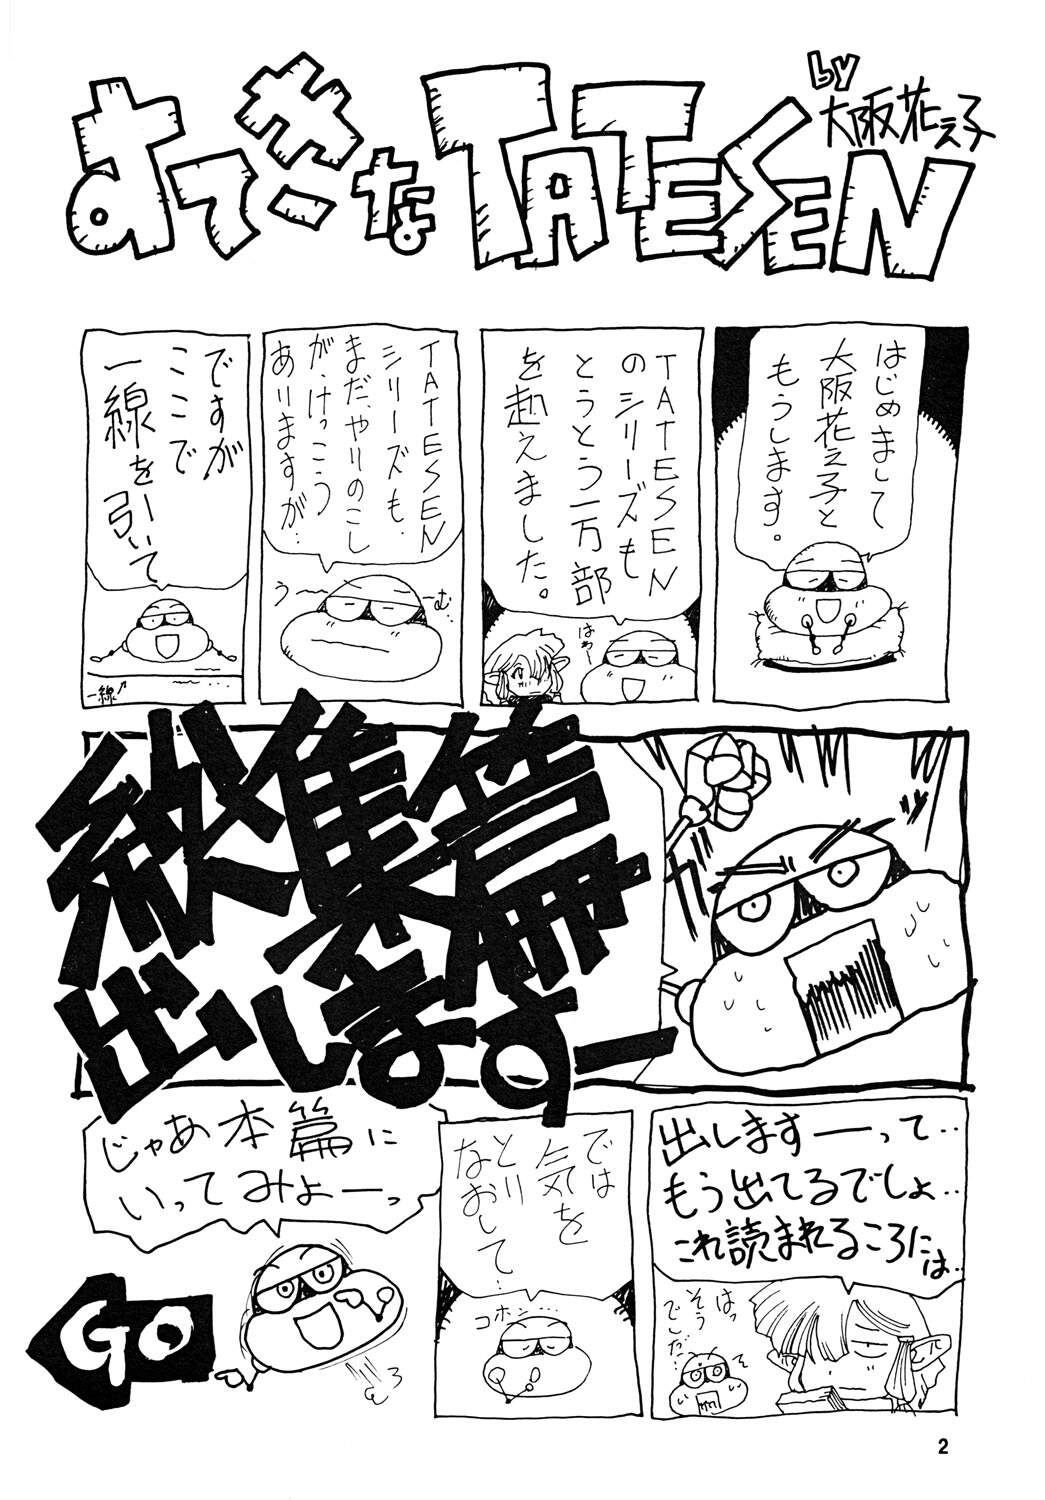 すてきなTATESEN
by
大阪花え子
はじめまして
大阪花え子と
もうします。
TATESEN
のシリーズも
とうとう一万部
を越えました。
はわー
TATESEN
シリーズも.
まだ、やりのこし
が、けっこう
ありますが.
うー
ーむ…
ですが
ここで
一線を引いて
一線
縦集篇
出しますー
ガッ
出しますーって‥
もう出てるでしょ‥
これ読まれるころには‥
はっ
そう
でした…
では
気を
とり
なおして‥
コホン…
じゃあ本篇に
いってみよーっ
GO
2